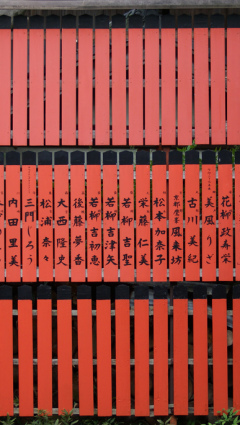 花柳政寿栄
美風りざ
古川美紀
京都賞音
風来坊
松本加奈子
栄藤仁美
若柳吉聖
若柳吉津矢
若柳吉初恵
後藤夢香
大西隆史
松浦奈々
三門しろう
内田里美